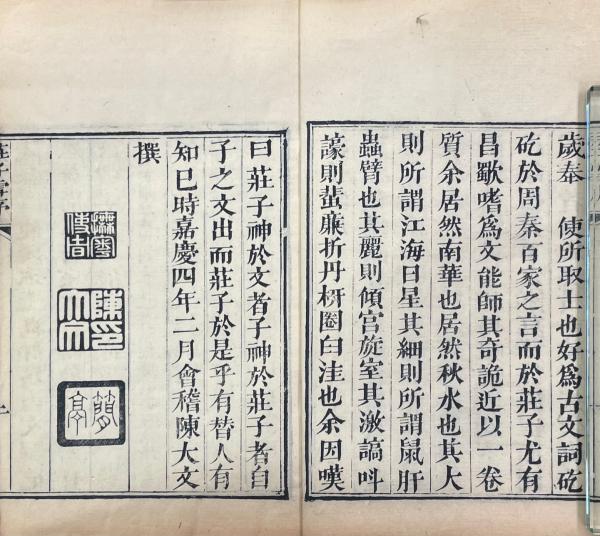 歲奉 使所取士也好爲古文詞矻
矻於周秦百家之言而於莊子尤有
昌歜嗜爲文能師其奇詭近以一卷
質余居然南華也居然秋水也其大
則所謂江海日星其細則所謂鼠肝
蟲臂也其麗則傾宫旋室其激謞叫
譹則蜚廉折丹枅圈臼洼也余因嘆
曰莊子神於文者子神於莊子者自
子之文出而莊子於是乎有替人有
知巳時嘉慶四年二月會稽陳大文
撰
陳印大文
簡亭
莊子雪序
一